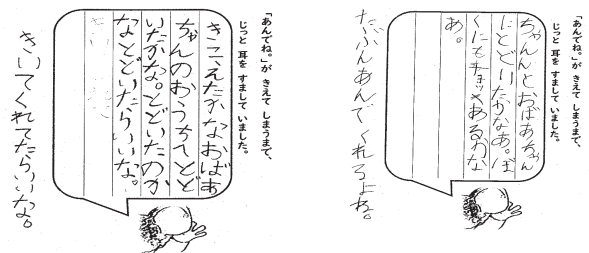 「あんでね。」が きえて しまうまで、
じっと 耳を すまして いました。
ちゃんと、おばあちゃん
にとどいたかなあ。ぼ
くにもチョッキあるかな
あ。
たぶんあんでくれるよね。
「あんでね。」が きえて しまうまで、
じっと 耳を すまして いました。
きこえたかなおばあ
ちゃんのおうちへとど
いたかな。とどいたのか
なとどいたらいいな。
きいてくれてたらいいな。